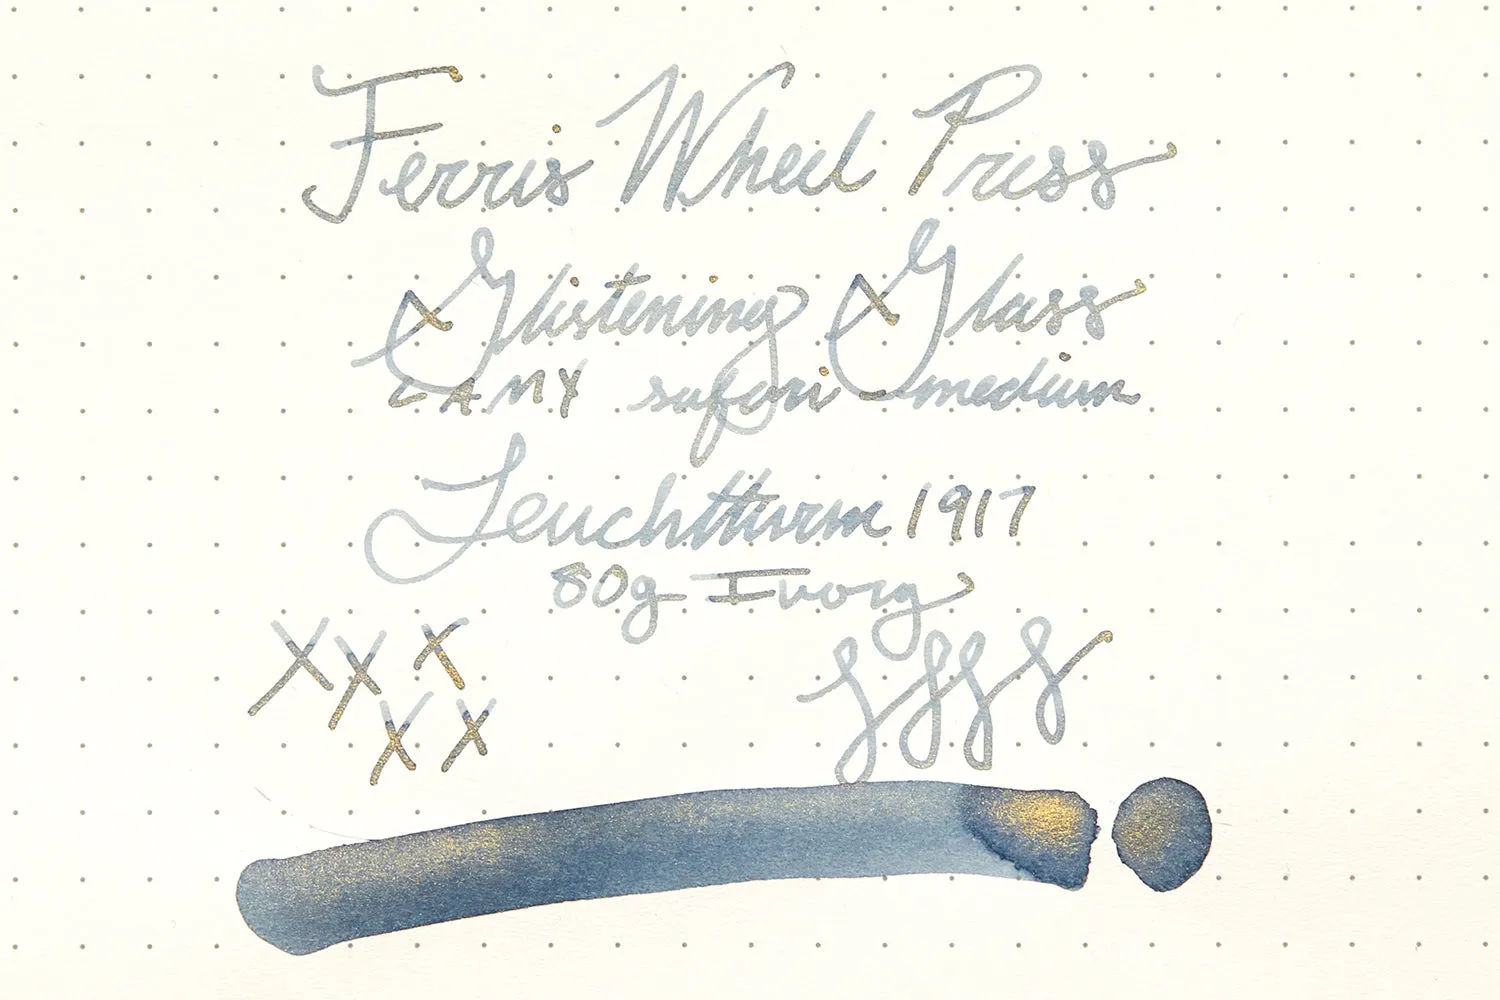 Ferris Wheel Press
Glistening Glass
LAMY safari medium
Leuchtturm 1917
80g Ivory
X X X
X X